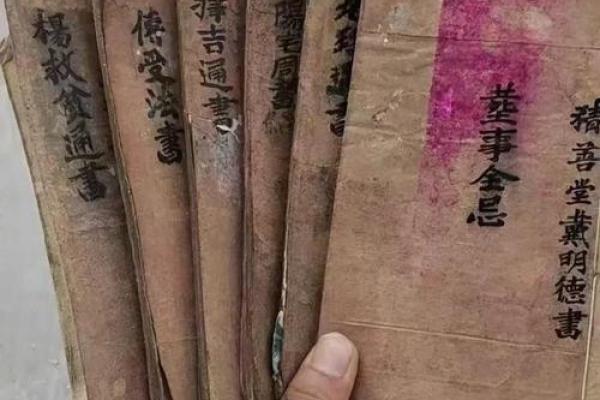 積善堂戴明德書
葬事全忌
理通書
陽宅周書
擇吉通書
傳受法書
楊救貧通書